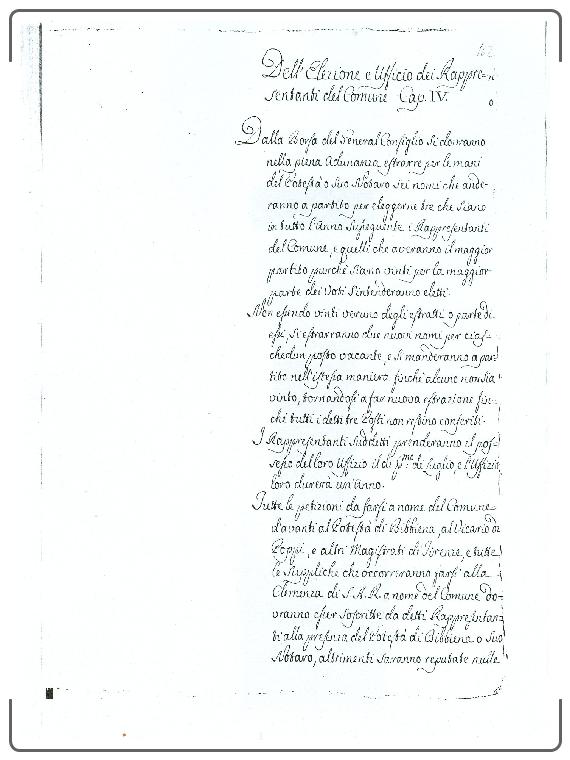 Dell' Elezione e Ufficio dei Rappre=
sentanti del Comune Cap. IV.
Dalla Borsa del General Consiglio si dovranno
nella piena Adunanza estrarre per le mani
del Potestà o suo Notaro sei nomi che ande-
ranno a partito per eleggerne tre che siano
in tutto l'Anno susseguente i Rappresentanti
del Comune, e quelli che averanno il maggior
partito purchè siano vinti per la maggior
parte dei Voti s'intenderanno eletti.
Non essendo vinti veruno degli estratti o parte di
essi, si estrarranno due nuovi nomi per cias-
chedun posto vacante, e si manderanno a par-
tito nell'istessa maniera finchè alcuno non sia
vinto, tornandosi a far nuova estrazione fin-
chè tutti i detti tre Posti non restino conferiti.
I Rappresentanti suddetti prenderanno il pos-
sesso del loro Uffizio il dì p.mo di Luglio, e l'Uffizio
loro durerà un'anno.
Tutte le petizioni da farsi a nome del Comune
davanti al Potestà di Bibbiena, al Vicario di
Poppi, e altri Magistrati di Firenze, e tutte
le Suppliche che occorreranno farsi alla
Clemenza di S.A.R. a nome del Comune do-
vranno esser soscritte da detti Rappresentan
ti alla presenza del Potestà di Bibbiena o suo
Notaro, altrimenti saranno reputate nulle